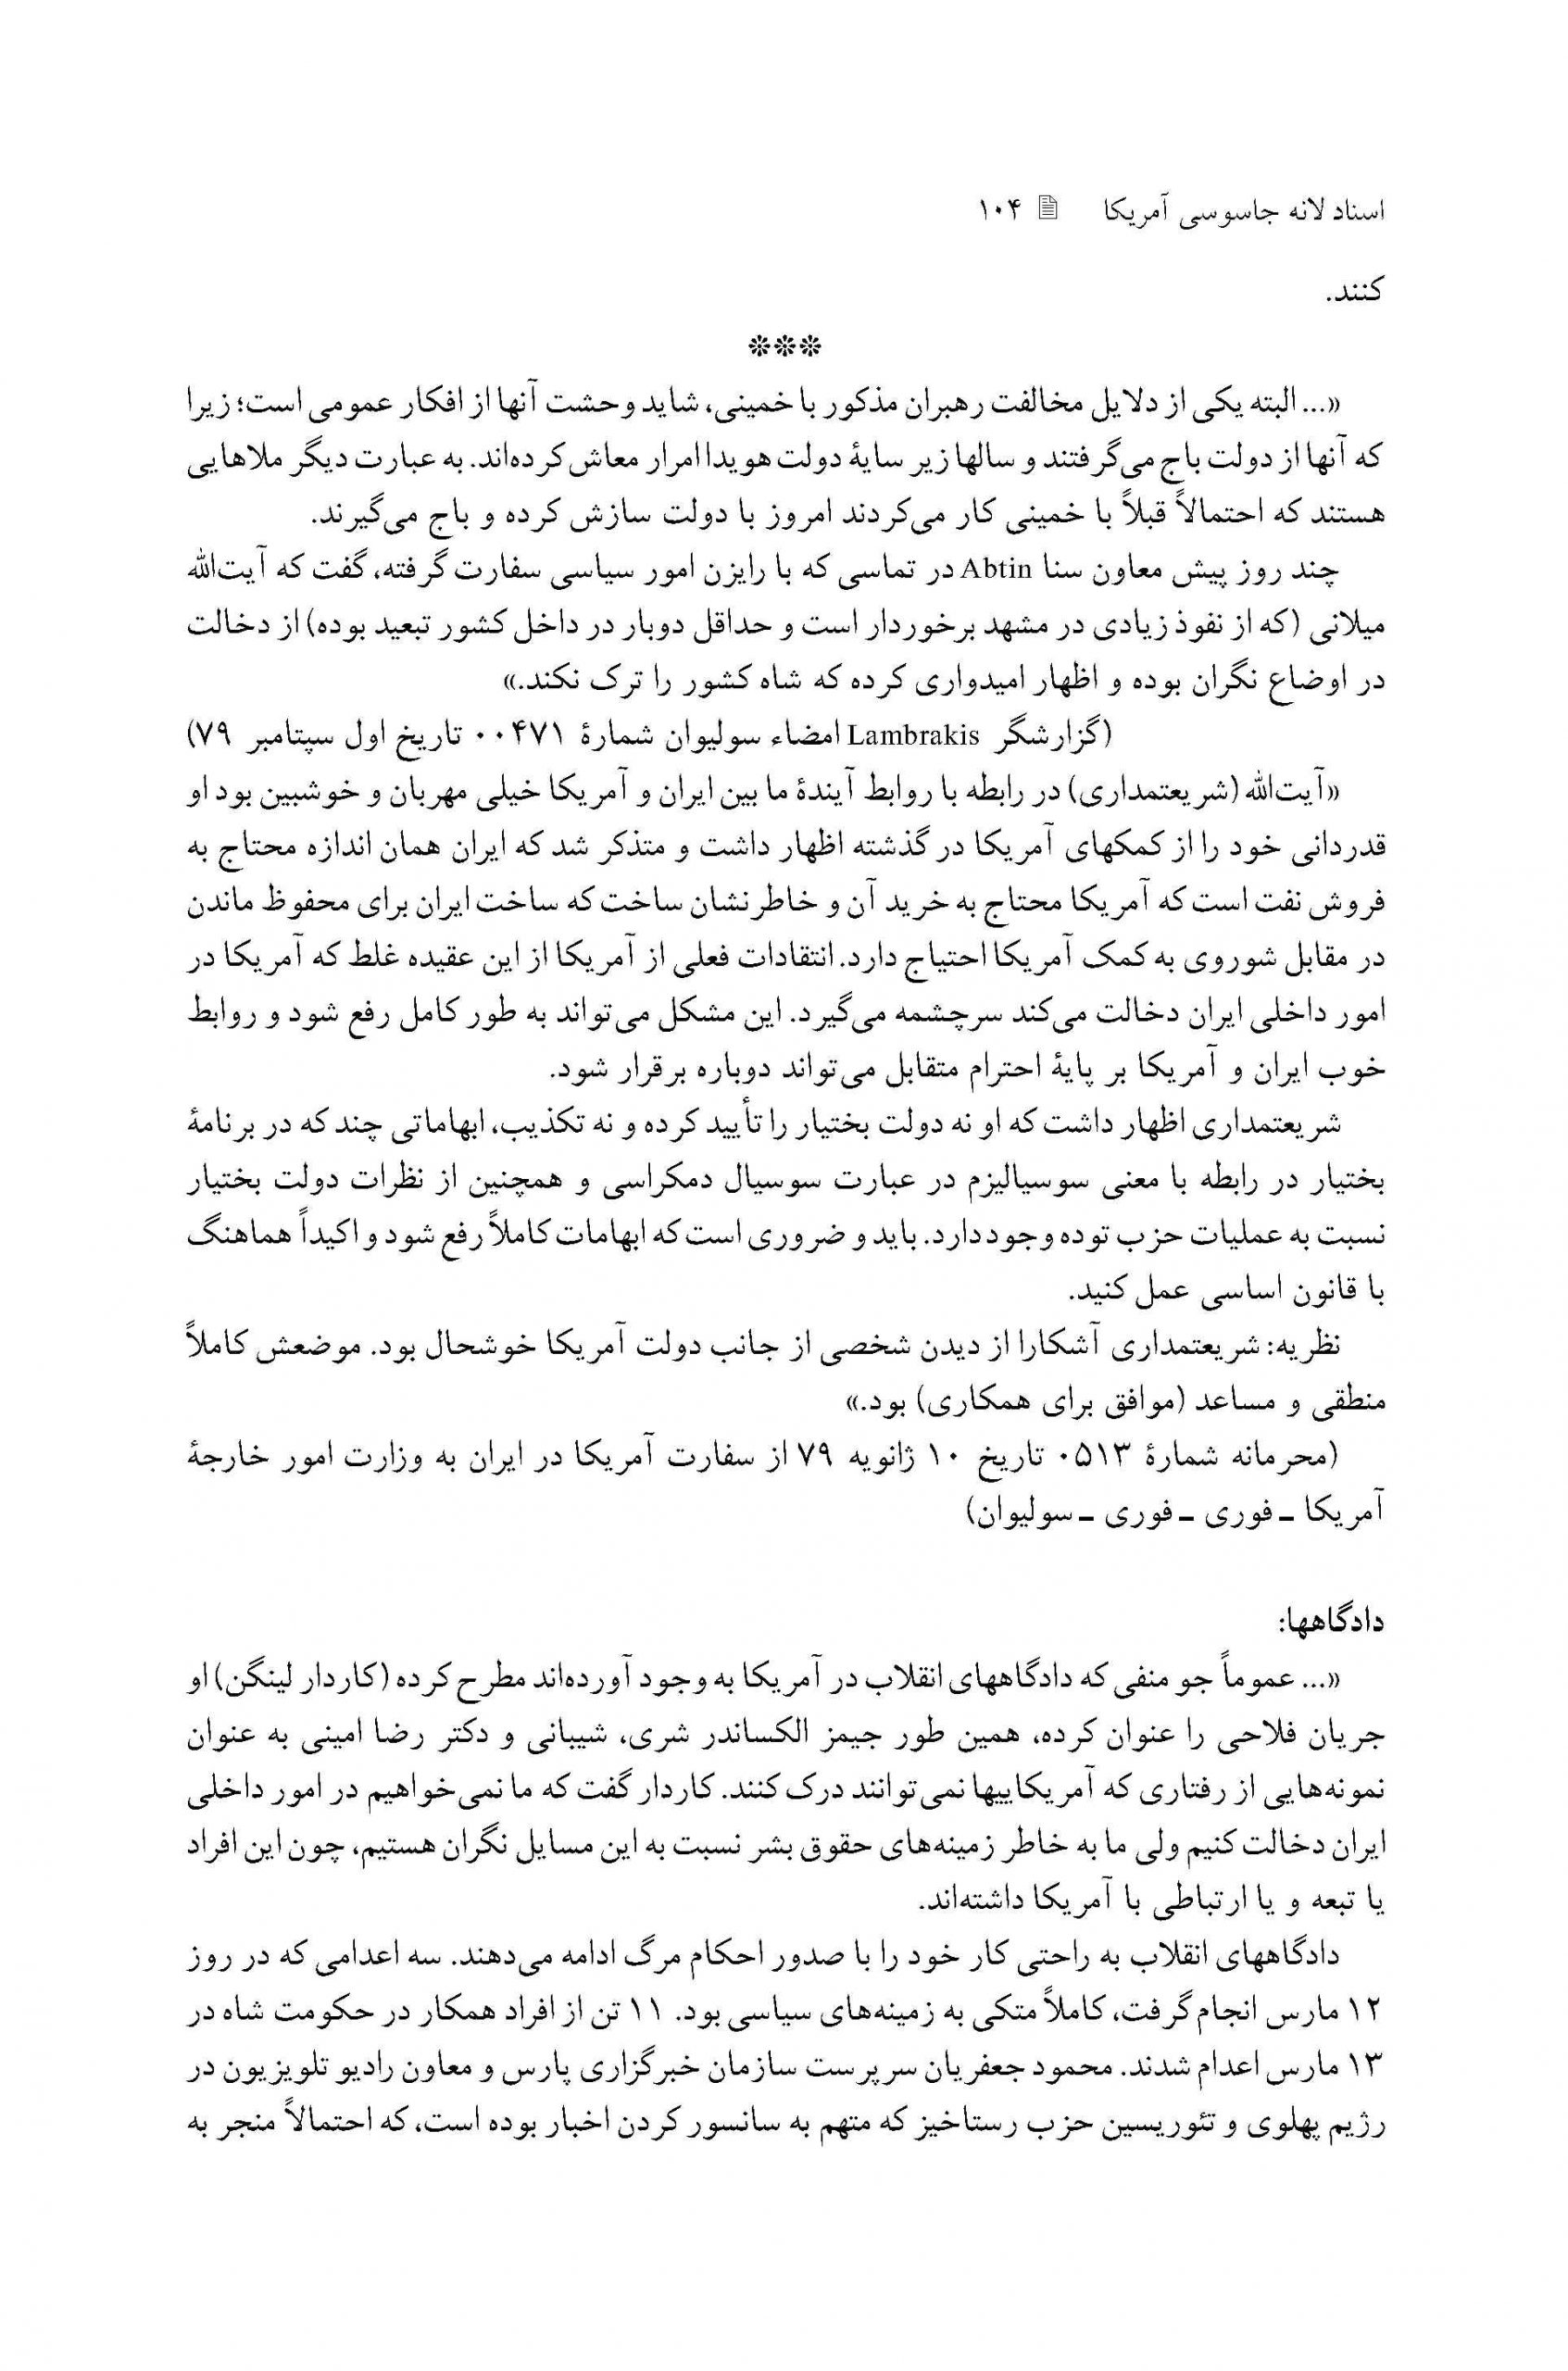 اسناد لانه جاسوسی آمریکا ۱۰۴
کنند.
***
«... البته یکی از دلایل مخالفت رهبران مذکور با خمینی، شاید وحشت آنها از افکار عمومی است؛ زیرا
که آنها از دولت باج می‌گرفتند و سالها زیر سایهٔ دولت هویدا امرار معاش کرده‌اند. به عبارت دیگر ملاهایی
هستند که احتمالاً قبلاً با خمینی کار می‌کردند امروز با دولت سازش کرده و باج می‌گیرند.
چند روز پیش معاون سنا Abtin در تماسی که با رایزن امور سیاسی سفارت گرفته، گفت که آیت‌الله
میلانی (که از نفوذ زیادی در مشهد برخوردار است و حداقل دوبار در داخل کشور تبعید بوده) از دخالت
در اوضاع نگران بوده و اظهار امیدواری کرده که شاه کشور را ترک نکند.»
(گزارشگر Lambrakis امضاء سولیوان شمارهٔ ۰۰۴۷۱ تاریخ اول سپتامبر ۷۹)
«آیت‌الله (شریعتمداری) در رابطه با روابط آیندهٔ ما بین ایران و آمریکا خیلی مهربان و خوشبین بود او
قدردانی خود را از کمکهای آمریکا در گذشته اظهار داشت و متذکر شد که ایران همان اندازه محتاج به
فروش نفت است که آمریکا محتاج به خرید آن و خاطرنشان ساخت که ساخت ایران برای محفوظ ماندن
در مقابل شوروی به کمک آمریکا احتیاج دارد. انتقادات فعلی از آمریکا از این عقیده غلط که آمریکا در
امور داخلی ایران دخالت می‌کند سرچشمه می‌گیرد. این مشکل می‌تواند به طور کامل رفع شود و روابط
خوب ایران و آمریکا بر پایهٔ احترام متقابل می‌تواند دوباره برقرار شود.
شریعتمداری اظهار داشت که او نه دولت بختیار را تأیید کرده و نه تکذیب، ابهاماتی چند که در برنامهٔ
بختیار در رابطه با معنی سوسیالیزم در عبارت سوسیال دمکراسی و همچنین از نظرات دولت بختیار
نسبت به عملیات حزب توده وجود دارد. باید و ضروری است که ابهامات کاملاً رفع شود و اکیداً هماهنگ
با قانون اساسی عمل کنید.
نظریه: شریعتمداری آشکارا از دیدن شخصی از جانب دولت آمریکا خوشحال بود. موضعش کاملاً
منطقی و مساعد (موافق برای همکاری) بود.»
(محرمانه شمارهٔ ۰۵۱۳ تاریخ ۱۰ ژانویه ۷۹ از سفارت آمریکا در ایران به وزارت امور خارجهٔ
آمریکا ـ فوری ـ فوری ـ سولیوان)
دادگاهها:
«... عموماً جو منفی که دادگاههای انقلاب در آمریکا به وجود آورده‌اند مطرح کرده (کاردار لینگن) او
جریان فلاحی را عنوان کرده، همین طور جیمز الکساندر شری، شیبانی و دکتر رضا امینی به عنوان
نمونه‌هایی از رفتاری که آمریکاییها نمی‌توانند درک کنند. کاردار گفت که ما نمی‌خواهیم در امور داخلی
ایران دخالت کنیم ولی ما به خاطر زمینه‌های حقوق بشر نسبت به این مسایل نگران هستیم، چون این افراد
یا تبعه و یا ارتباطی با آمریکا داشته‌اند.
دادگاههای انقلاب به راحتی کار خود را با صدور احکام مرگ ادامه می‌دهند. سه اعدامی که در روز
۱۲ مارس انجام گرفت، کاملاً متکی به زمینه‌های سیاسی بود. ۱۱ تن از افراد همکار در حکومت شاه در
۱۳ مارس اعدام شدند. محمود جعفریان سرپرست سازمان خبرگزاری پارس و معاون رادیو تلویزیون در
رژیم پهلوی و تئوریسین حزب رستاخیز که متهم به سانسور کردن اخبار بوده است، که احتمالاً منجر به